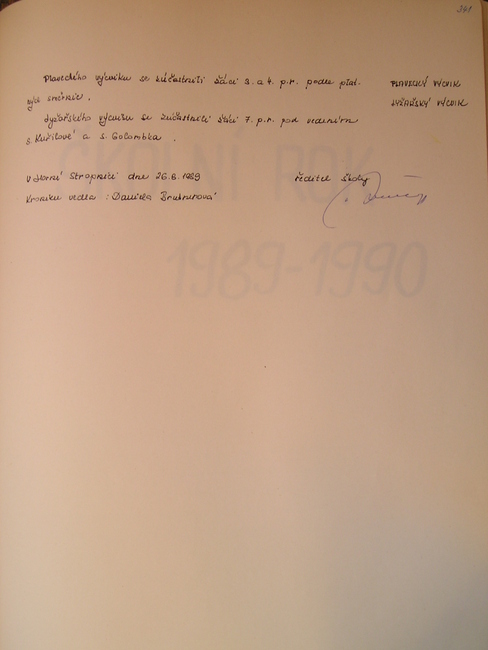 341
Plaveckého výcviku se zúčastnili žáci 3. a 4. p.r. podle plat-
ných směrnic.
Lyžařského výcviku se zúčastnili žáci 7. p.r. pod vedením
s. Kužilové a s. Golombka.
PLAVECKÝ VÝCVIK
LYŽAŘSKÝ VÝCVIK
V Horní Stropnici dne 26.6.1989
ředitel školy
Kroniku vedla : Daniela
ŠKOLNÍ ROK
1989-1990